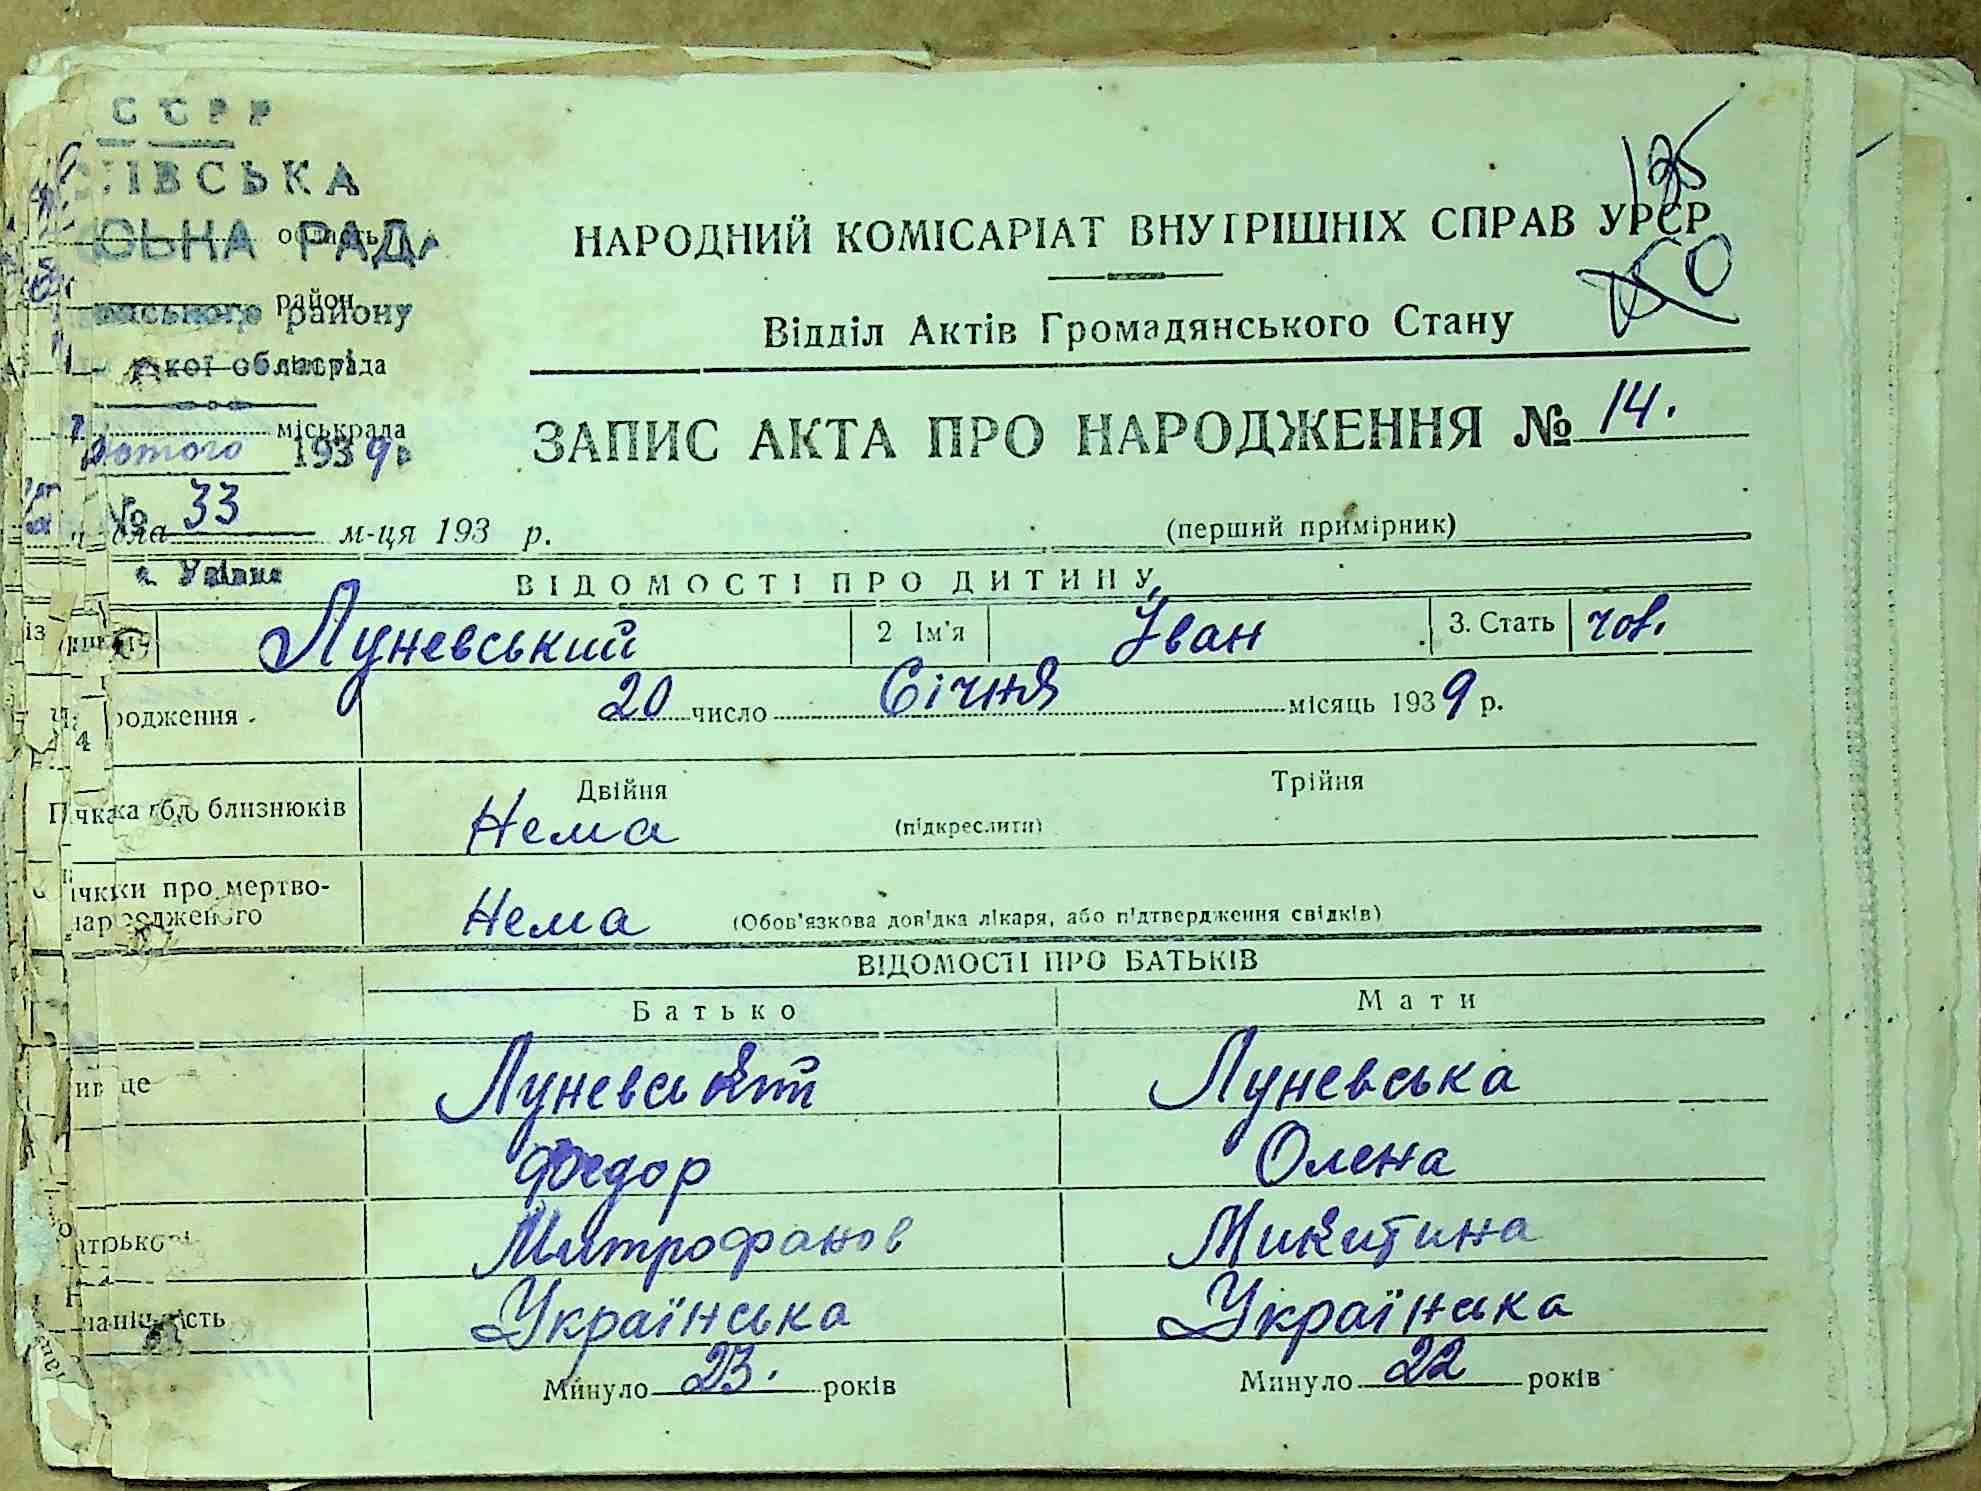 ССРР
ІВСЬКА
СЬКА РАДА
область
район
ського району
кої області
міськрада
Лютого 1939 р.
№ 33
м-ця 193 р.
125
НАРОДНИЙ КОМІСАРІАТ ВНУТРІШНІХ СПРАВ УРСР
Відділ Актів Громадянського Стану
ЗАПИС АКТА ПРО НАРОДЖЕННЯ № 14.
(перший примірник)
ВІДОМОСТІ ПРО ДИТИНУ
Луневський 2 Ім'я Іван 3. Стать чов.
родження 20 число Січня місяць 1939 р.
близнюків Двійня Трійня
Нема (підкреслити)
про мертво-
народженого Нема (Обов'язкова довідка лікаря, або підтвердження свідків)
ВІДОМОСТІ ПРО БАТЬКІВ
Батько Мати
Луневський Луневська
Федор Олена
Митрофанов Микитина
Українська Українська
Минуло 23. років Минуло 22 років